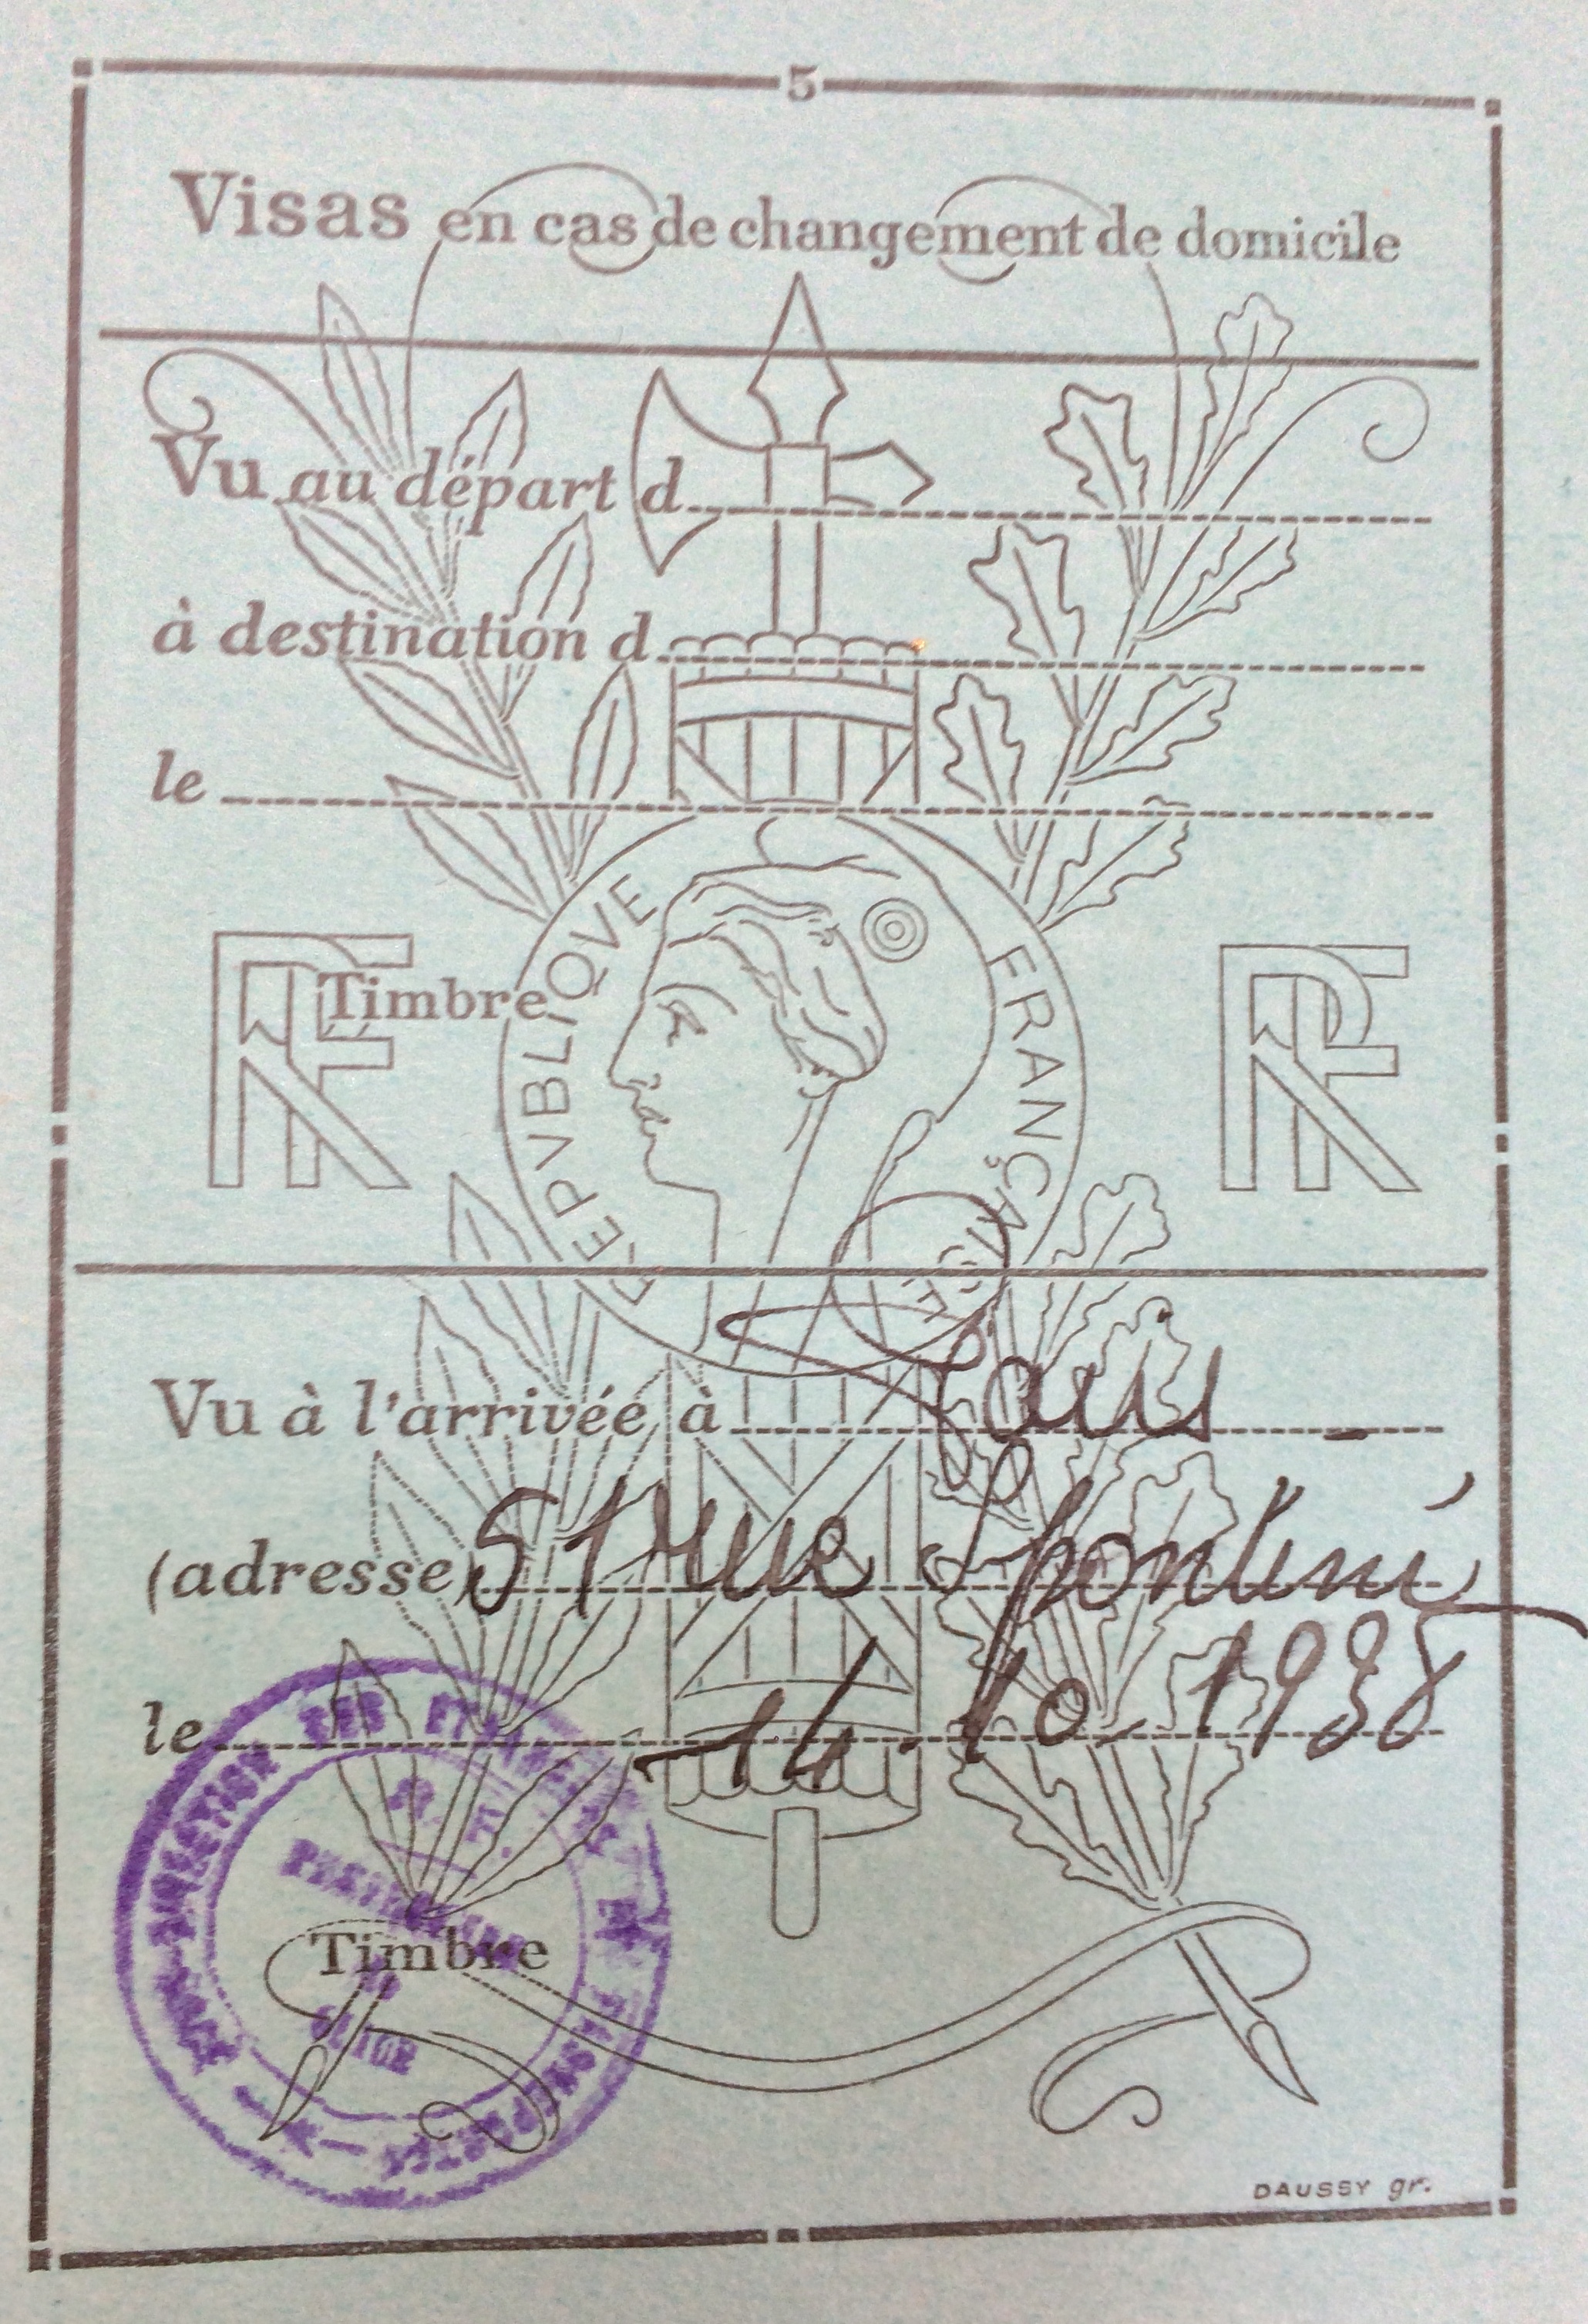 5
Visas en cas de changement de domicile
Vu au départ d
à destination d
le
RF
Timbre
RF
REPVBLIQVE FRANÇAISE
Vu à l'arrivée à Paris
(adresse) rue Spontini
le 14.10.1938
DIRECTION DES
Timbre
DAUSSY gr.